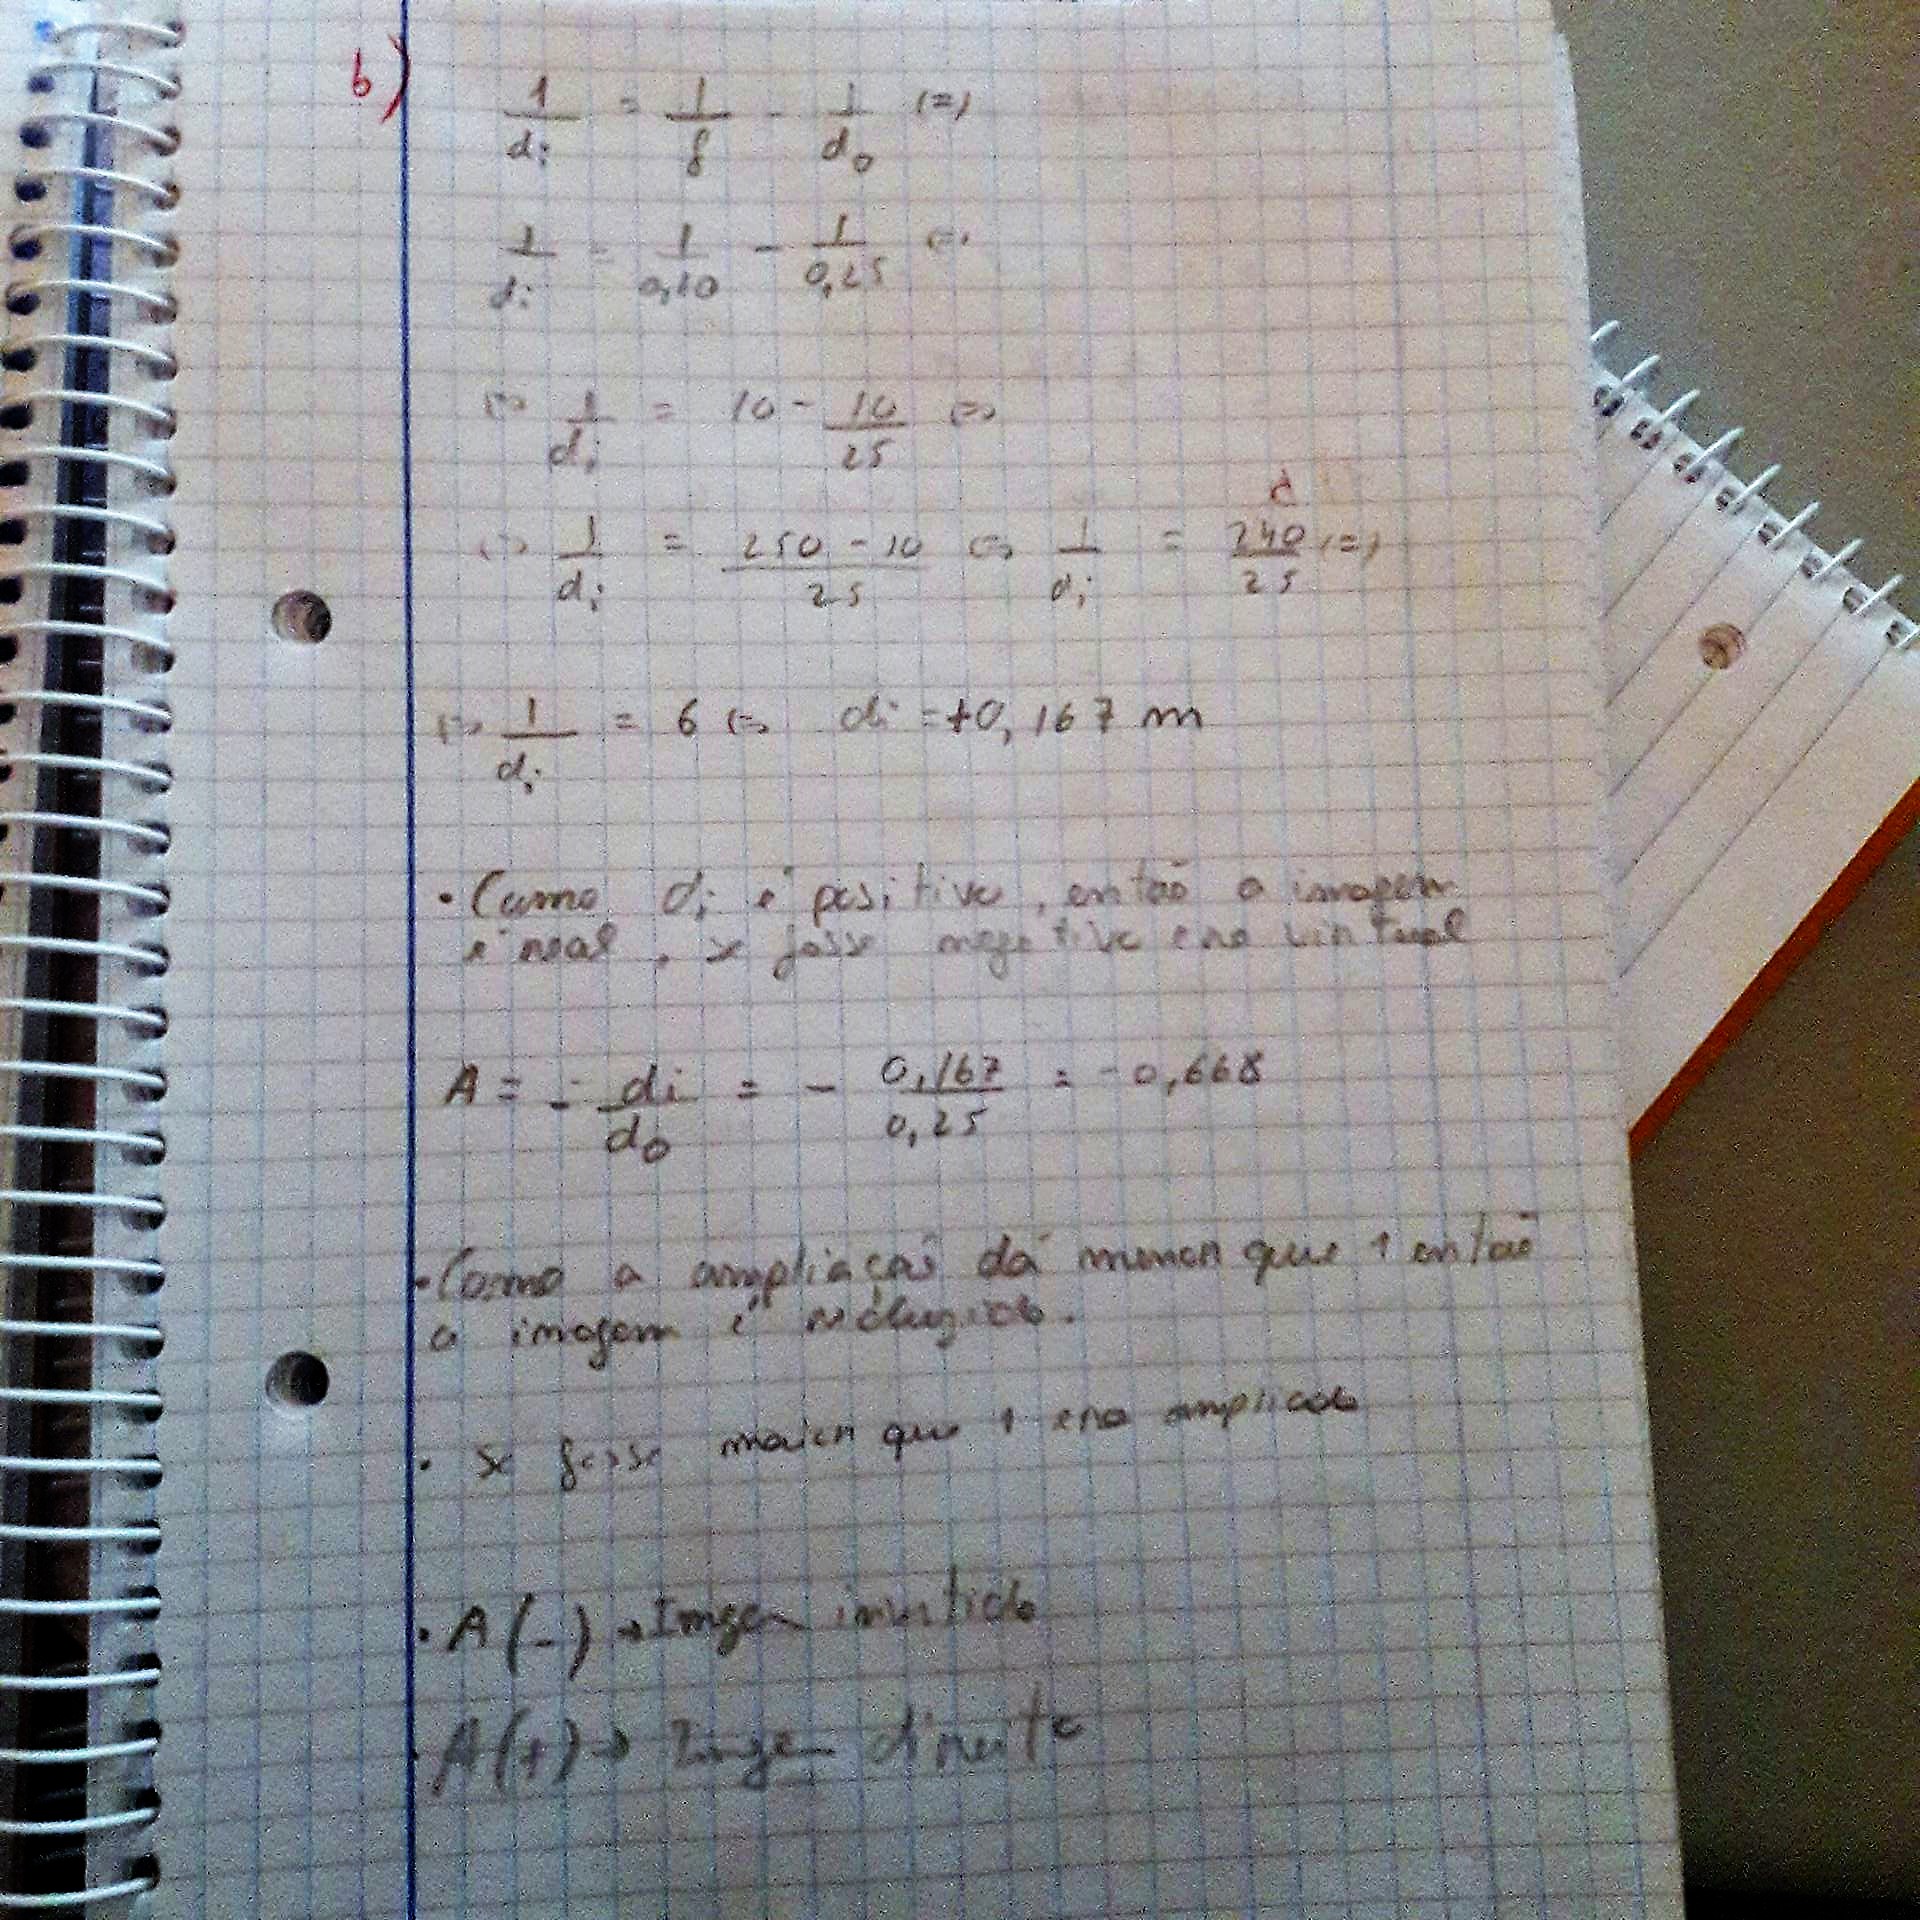 b)
1/di = 1/f - 1/do (=)
1/di = 1/0,10 - 1/0,25 (=)
(=) 1/di = 10 - 10/25 (=)
(=) 1/di = 250 - 10/25 (=) 1/di = 240/25 (=)
(=) 1/di = 6 (=) di = +0,167 m
• Como di é positivo, então a imagem
é real, se fosse negativo era virtual
A = - di/do = - 0,167/0,25 = -0,668
• Como a ampliação dá menor que 1 então
a imagem é reduzida.
• Se fosse maior que 1 era ampliada
• A(-) → Imagem invertida
• A(+) → Imagem direita